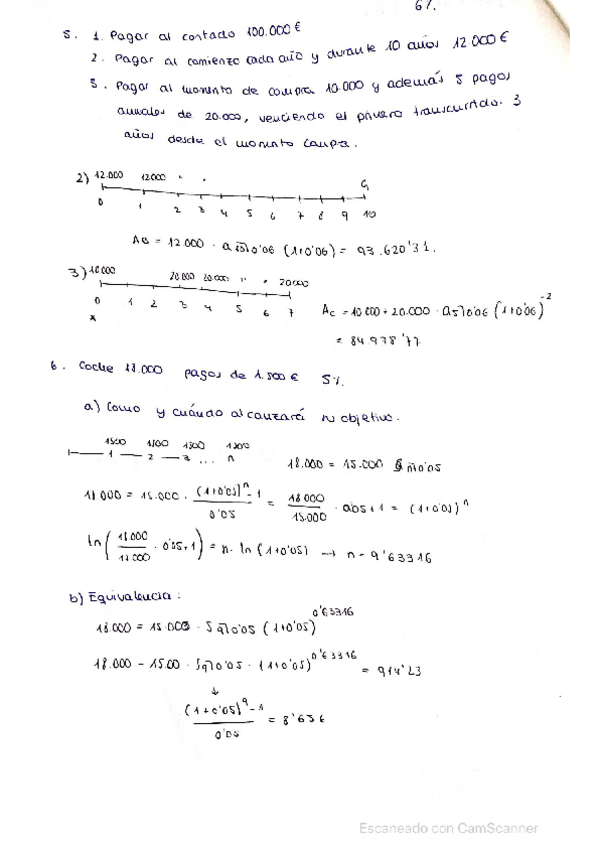 6%.
5. 1. Pagar al contado 100.000€
2. Pagar al comienzo cada año y durante 10 años 12.000€
3. Pagar al momento de compra 10.000 y además 5 pagos
anuales de 20.000, venciendo el primero transcurridos 3
años desde el momento compra.
2) 12.000 12000 " .
0 1 2 3 4 5 6 7 8 9 10
AB = 12.000 · a10|0'06 (1+0'06) = 93.620'31.
3) 10.000 20.000 20.000 " " 20000
0 1 2 3 4 5 6 7
AC = 10.000 + 20.000 · a5|0'06 (1+0'06)^-2
= 84.978'77
6. Coche 18.000 pagos de 1.500€ 5%.
a) Como y cuándo alcanzará su objetivo.
1500 1500 1500 1500
1 2 3 ... n
18.000 = 15.000 Sn|0'05
18000 = 15.000 · (1+0'05)^n - 1 / 0'05 = 18.000 / 15.000 · 0'05 + 1 = (1+0'05)^n
ln( / · 0'05+1) = n · ln (1+0'05) → n = 9'63316
b) Equivalencia:
18.000 = 15.000 · S9|0'05 (1+0'05)^0'63316
18.000 - 15.00 · S9|0'05 · (1+0'05)^0'63316 = 914'23
↓
(1+0'05)^9 - 1 / 0'05 =
Escaneado con CamScanner